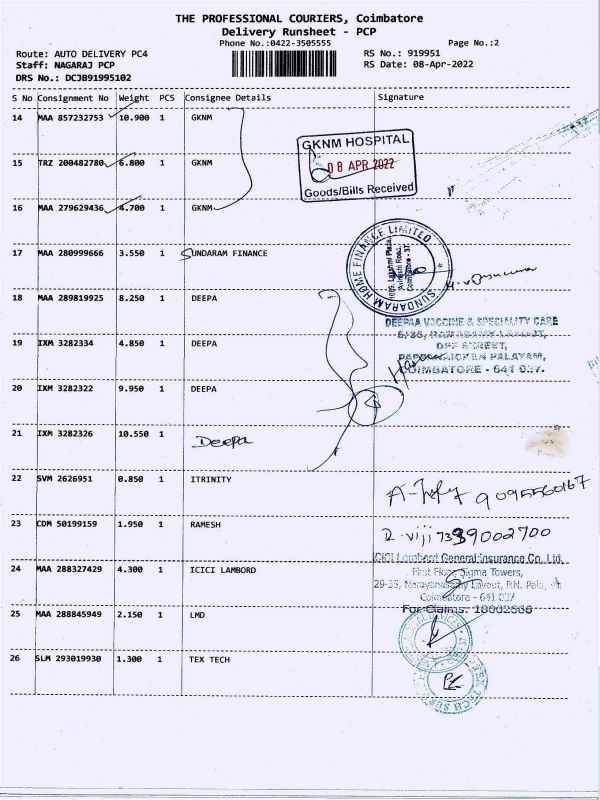 THE PROFESSIONAL COURIERS, Coimbatore
Delivery Runsheet - PCP
Phone No.:0422-3505555
Page No.:2
Route: AUTO DELIVERY PC4
RS No.: 919951
Staff: NAGARAJ PCP
RS Date: 08-Apr-2022
DRS No.: DCJB91995102
S No Consignment No Weight PCS Consignee Details Signature
14 MAA 857232753 10.900 1 GKNM
GKNM HOSPITAL
08 APR 2022
Goods/Bills Received
15 TRZ 200482780 6.800 1 GKNM
16 MAA 279629436 4.700 1 GKNM
17 MAA 280999666 3.550 1 SUNDARAM FINANCE
SUNDARAM HOME FINANCE LIMITED
1089, Lakshmi Plaza,
Avinashi Road,
Coimbatore - 37
18 MAA 289819925 8.250 1 DEEPA
DEEPAA VACCINE & SPECIALITY CARE
STREET,
PALAYAM,
COIMBATORE - 641 037.
19 IXM 3282334 4.850 1 DEEPA
20 IXM 3282322 9.950 1 DEEPA
21 IXM 3282326 10.550 1 Deepa
22 SVM 2626951 0.850 1 ITRINITY
9095560167
23 CDM 50199159 1.950 1 RAMESH
R. viji 7339002700
24 MAA 288327429 4.300 1 ICICI LAMBORD
ICICI Lombard General Insurance Co. Ltd.
First Floor, Sigma Towers,
29-35, Layout, P.N.
Coimbatore - 641 037
For Claims:
25 MAA 288845949 2.150 1 LMD
26 SLM 293019930 1.300 1 TEX TECH